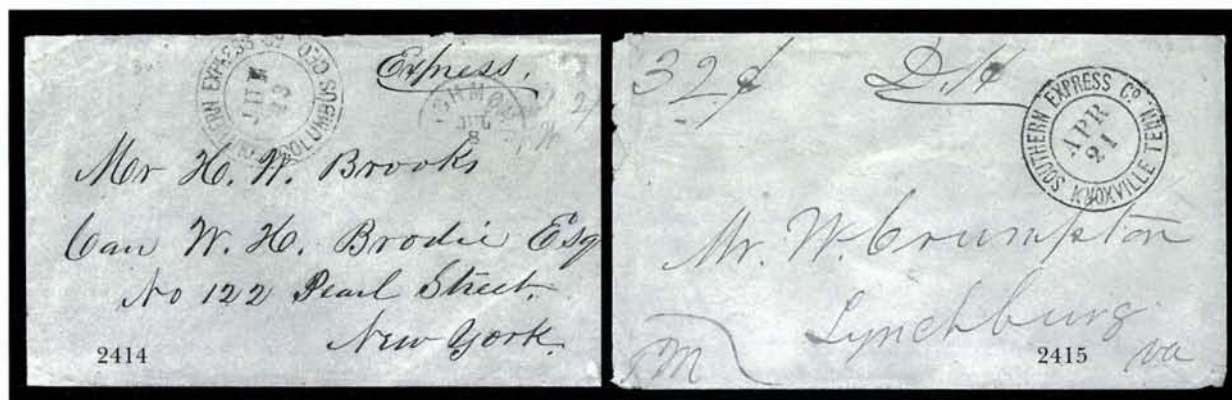 SOUTHERN EXPRESS CO. COLUMBUS GEO.
JUL
Express.
RICHMOND
JUL
8
Mr H. W. Brooks
Care W. H. Brodie Esq
No 122 Pearl Street.
New York.
2414
32¢
D.H
SOUTHERN EXPRESS CO. KNOXVILLE TENN
APR
21
Mr. W. Crumpton
Lynchburg
Va
2415